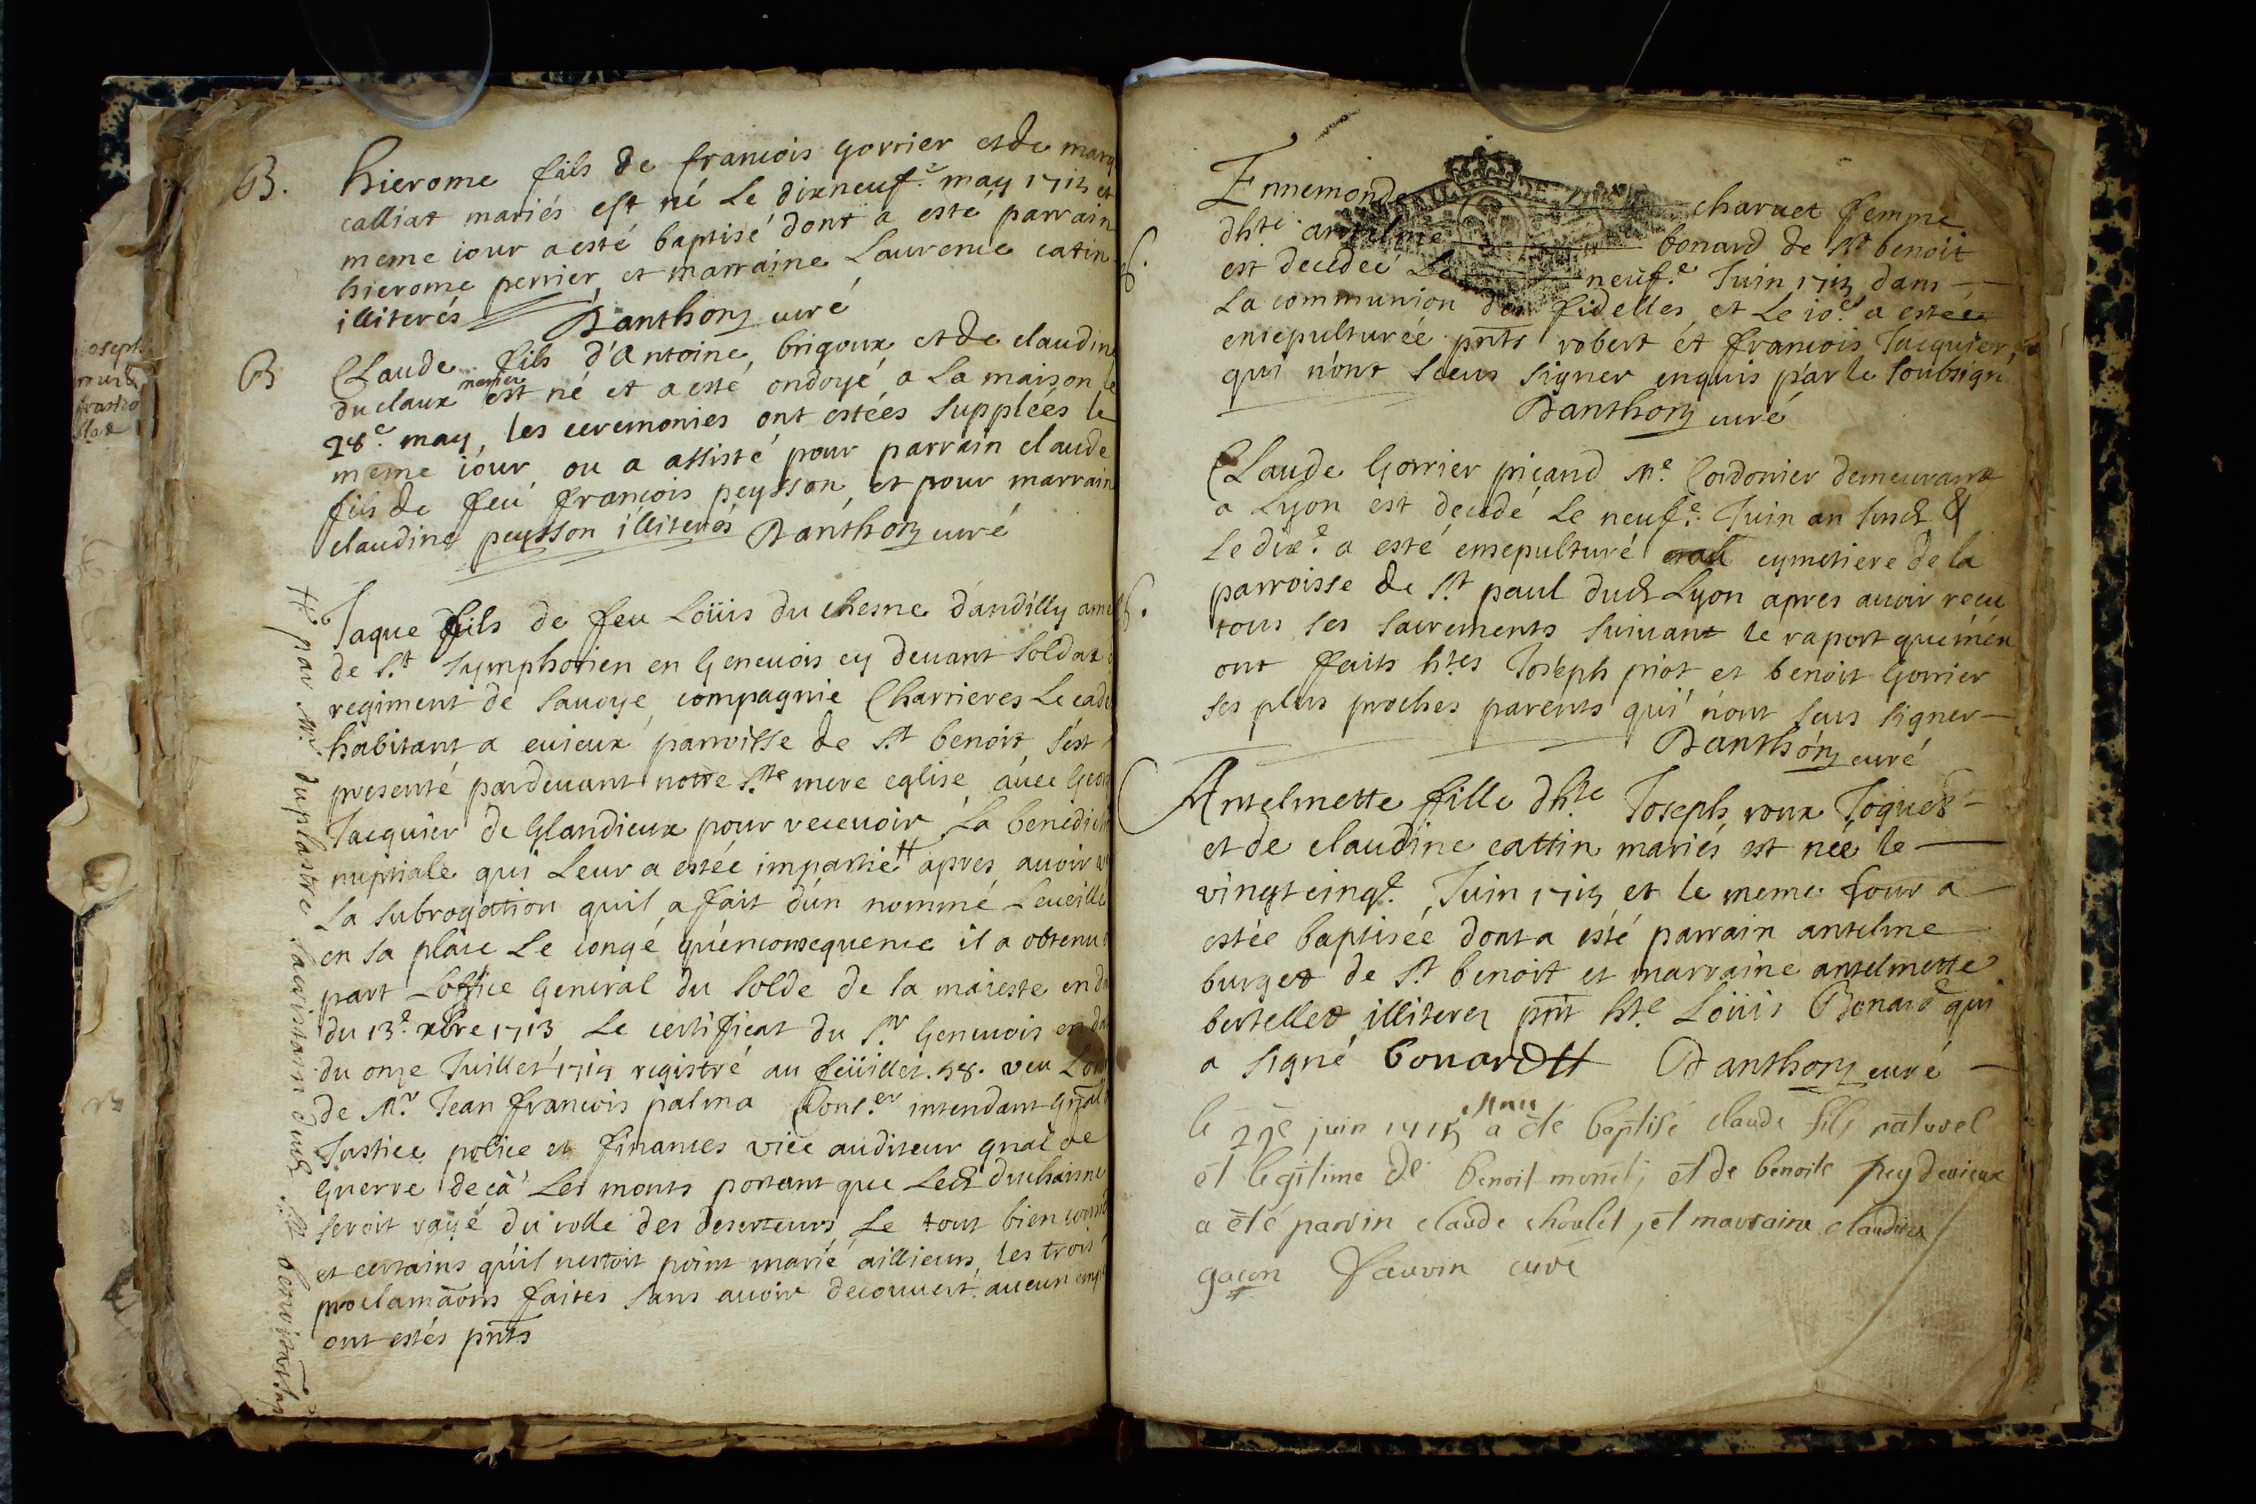 B. hierome fils de francois gorrier et de marg
calliat mariés est né Le dixneuf.e may 1715 et
meme iour a esté baptisé dont a esté parrain
hierome perrier, et marraine Laurence catin
illiterés Danthony curé
B CLaude fils d'Antoine, brigoux et de claudine
du claux mariés est né et a esté ondoyé a La maison le
28e. may, les ceremonies ont estées supplées le
meme iour ou a assisté pour parrain claude
fils de feu francois peysson, et pour marrain
claudine peysson illiterés Danthony curé
Jaque fils de feu Loüis du chesne d'andilly ame
de St. symphorien en Genevois cy devant soldat
regiment de savoye compagnie Charrieres Le cade
habitant a evieux parroisse de St. benoit s'est
presenté pardevant notre Ste mere eglise avec Geor
Jacquier de Glandieux pour recevoir La benedict
nuptiale qui Leur a estée impartie # apres avoir
La subrogation quil a fait d'un nommé Leveillé
en sa place Le congé qu'enconsequence il a obtenu
part Loffice General du solde de sa maieste en da
du 13e. xbre 1713 Le certificat du Sr. Genevois en da
du onze Juillet 1714 registré au feüillet. 48. veu Lor
de Mr. Jean francois palma Cons.er intendant gnal
Justice police et finances vice auditeur gnal de
Guerre deçà Les monts portant que Ledt duchaisne
seroit rayé du rolle des deserteurs Le tout bien consid
et certains qu'il nestoit point marié aillieurs, les trois
proclamaõns faites sans avoir decouvert aucun emp
ont estés pnts
# par Mr. duplastre sacristain dudt St benoit
Ennemonde charvet femme
dhte. antelme bonard de St benoit
est decedeé Le neuf.e Juin 1715 dans
La communion des fidelles et Le 10e. a estée
ensepulturée pnts robert et francois Jacquier,
qui n'ont sceus signer enquis par le soubsigné
Danthony curé
CLaude Gorrier picand Me. Cordonier demeurant
a Lyon est decedé Le neuf.e Juin an susdt &
Le dix.e a esté ensepulturé au cymetiere de la
parroisse de St. paul dudt Lyon apres avoir receu
tous ses sacrements suivant le raport que m'en
ont faits htes Joseph piot et benoit Gorrier
ses plus proches parents qui n'ont seus signer
Danthony curé
Antelmette fille dhte Joseph roux Joquet
et de claudine cattin mariés est née le
vingt cinq.e Juin 1715 et le meme Jour a
estée baptisée dont a esté parrain antelme
burget de St. benoit et marraine antelmette
bertellet illiteres pnt hte Loüis Bonard qui
a signé bonard Danthony curé
le 29e juin 1715 a été baptisé claude fils naturel
et legitime de benoit monet, et de benoite peydevieux
a été parrin claude choulet, et marraine claudine
gacon fauvin curé